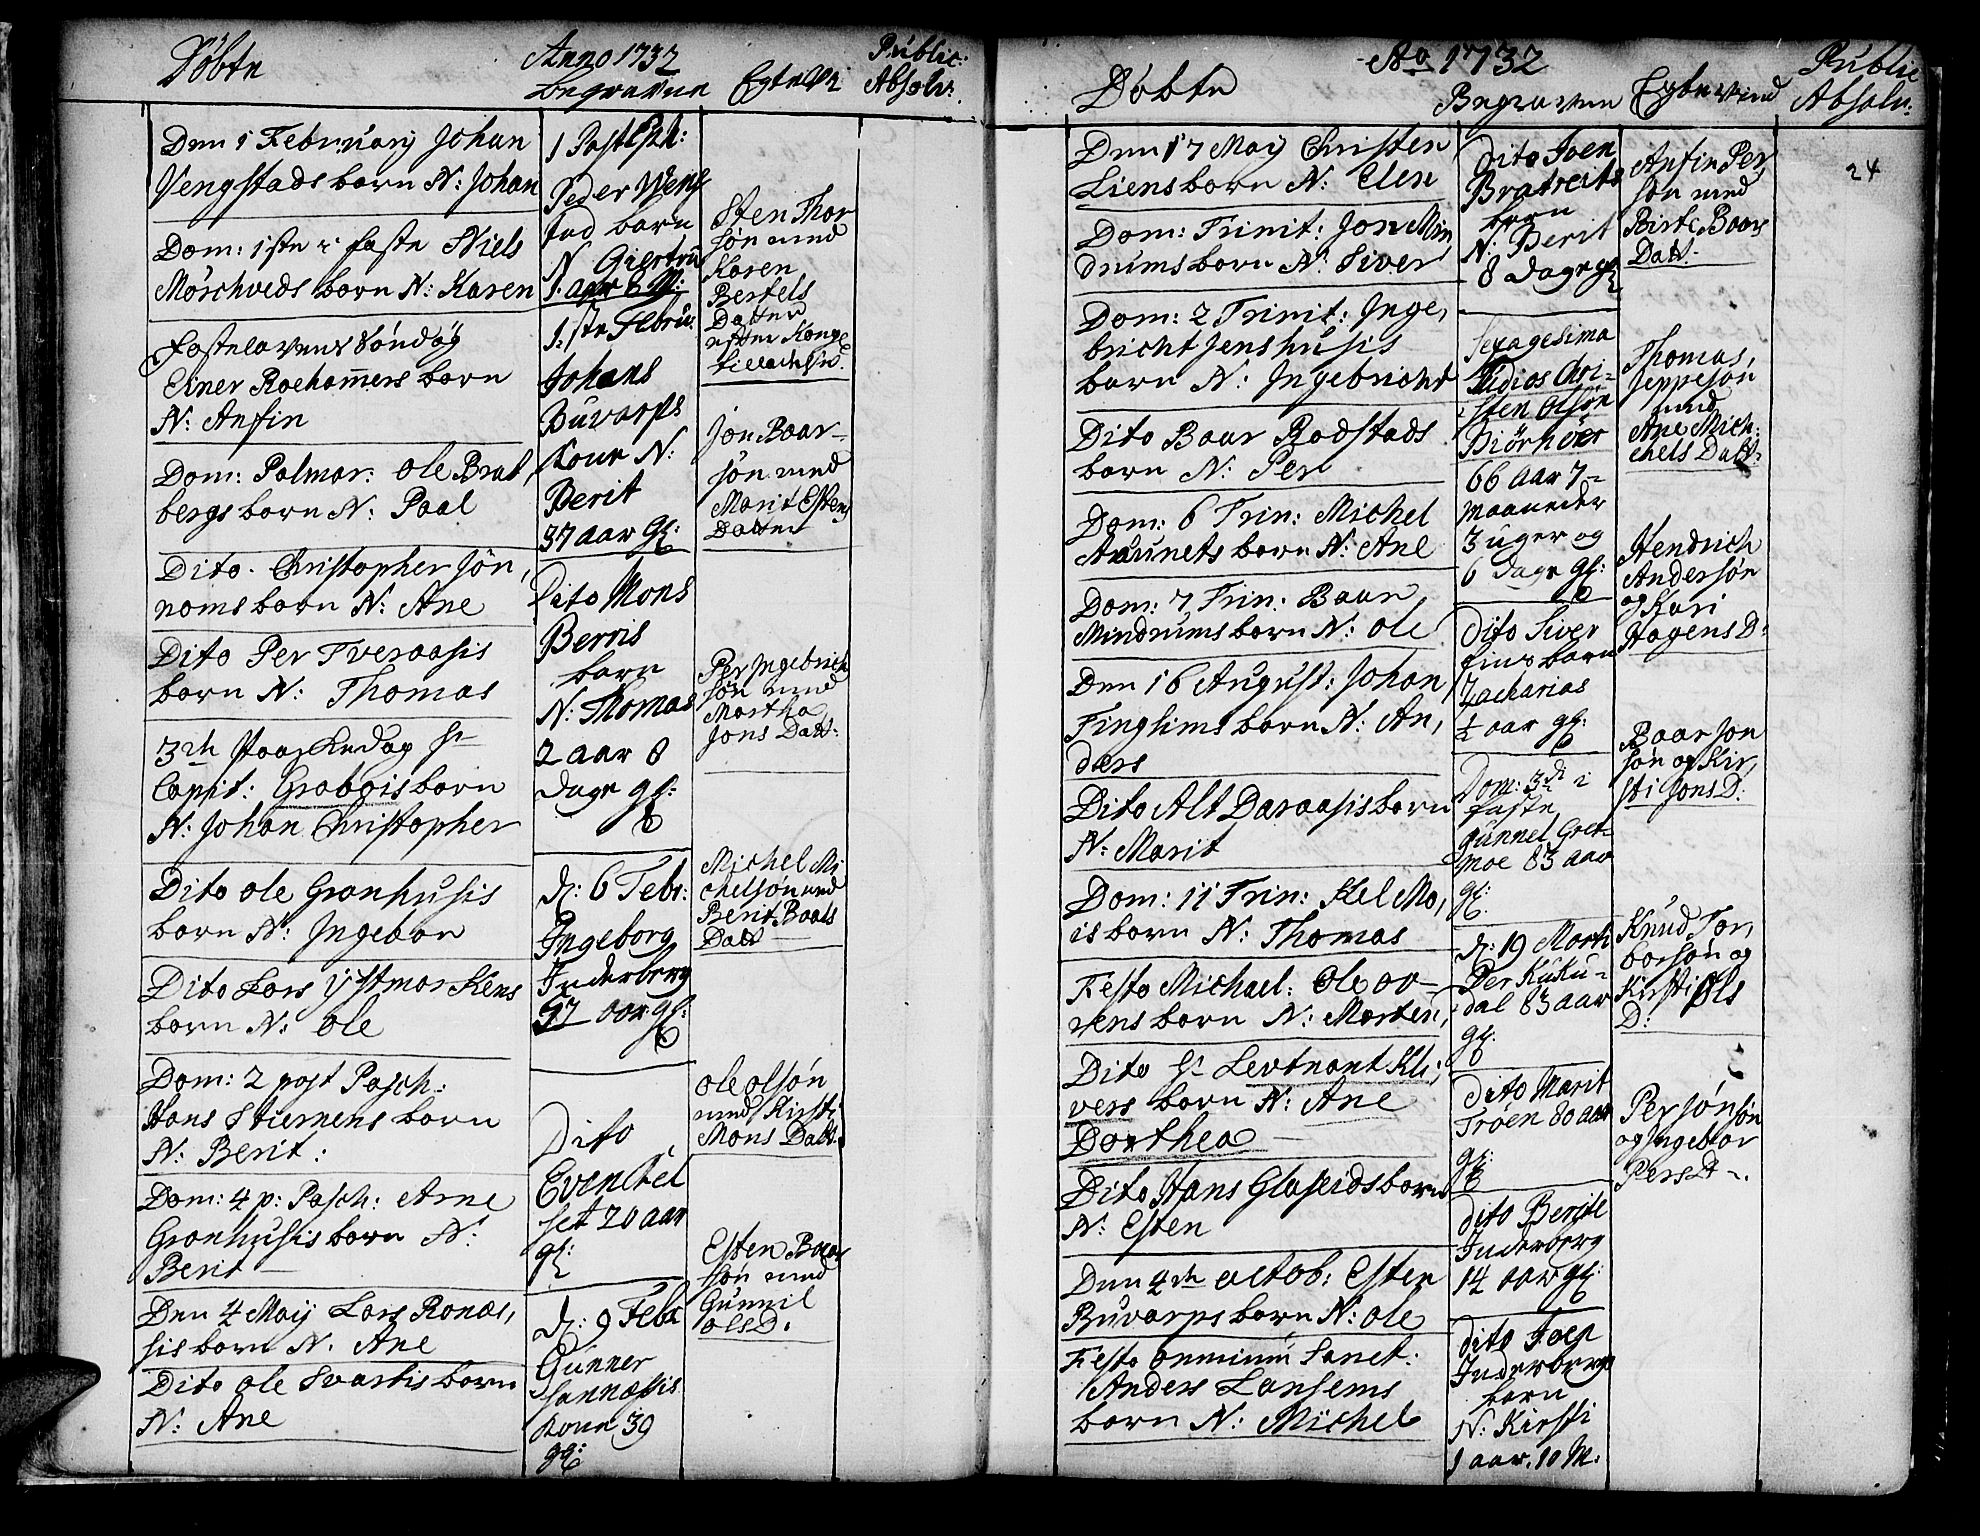 Døbte
Anno 1732
Begravne
Egtevi:
Public:
Absolv:
Den 1 February Johan
Vengstads barn N: Johan
Dom: 1ste i faste Niels
Mørchveds barn N: Karen
Fastelavens Søndag
Einer Roehammers barn
N: Anfin
Dom: Palmar: Ole Brat
bergs barn N: Paal
Dito Christopher Jøn,
noms barn N: Ane
Dito Per Tveraasis
barn N: Thomas
3de Paaskedag Hr
Capit: Grabois barn
N: Johan Christopher
Dito Ole Gronhusis
barn N: Ingebor
Dito Lars Ystmarkens
barn N: Ole
Dom: 2 post Pasch:
Hans Stiernens barn
N: Berit:
Dom: 4 p: Pasch: Arne
Gronhusis barn N:
Berit
Den 4 Maij Lars Ronæs,
sis barn N. Ane
Dito Ole Svartis barn
N: Ane
1 Post Eph:
Peder Weng
stad barn
N Giertru
1 aar 6 M:
1ste Febru:
Johans
Buvarps
Kone N:
Berit
37 aar gl:
Dito Mons
Berris
barn
N: Thomas
2 aar 8
dage gl:
d: 6 Febr:
Ingeborg
Inderberg
97 aar gl:
Dito
Even
set 20 aar
gl:
d: 9 Feb:
Gunner
Sannæssis
Kone 39
gl:
Sten Thor
søn med
Karen
Bertels
Datter
efter Konge

Jon Baar
søn med
Marit Estens
Datter
Per Ingebrich
søn med
Martha
Jons Datt:
Michel Mi
chelsøn med
Berit Baars
Datt
Ole Olsøn
med Kirsti
Mons Datt:
Esten Baar
søn med
Gunnil
Ols D.
Ao 1732
Døbte
Begravne
Egtevied
Public
Absolv:
24
Den 17 Maij Christen
Liens barn N: Elen
Dom: Trinit: Jon Min,
drums barn N: Siver
Dom: 2 Trinit: Inge,
bricht Jenshusis
barn N: Ingebricht
Dito Baar Rodstads
barn N: Per
Dom: 6 Trin: Michel
Aaunets barn N: Ane
Dom: 7 Trin: Baar
Mindrums barn N: Ole
Den 16 August: Johan
Tinglums barn N: An,
ders
Dito Alt Daraasis barn
N: Marit
Dom: 11 Trin: Kel Mo,
is barn N: Thomas
Festo Michael: Ole Ov-
rens barn N: Morten
Dito Hr Levtnant Kli,
vers barn N: Ane
Dorthea
Dito Hans Gloseids barn
N: Esten
Den 4de Octob: Esten
Buvarps barn N: Ole
Festo Omnium Sanct:
Anders Lansems
barn N: Michel
Dito Iven
Bratreits
barn
N: Berit
8 dage gl
Sexagesima
Tidios Cri-
sten Olsøn
Biørhver
66 aar 7
Maaneder
3 uger og
6 dage gl:
Dito Siver
Fins barn
Zacharias
½ aar gl:
Dom: 3de i
Faste
Gunnel Gret
moe 83 aar
gl:
d: 19 Marti
Per Kuku-
dal 83 aar
gl:
Dito Marit
Trøen 80 aar
gl:
Dito Berite
Inderberg
14 aar gl:
Dito Joen
Inderbergs
barn
N: Kirsti
1 aar. 10 M.
Anfin Per,
søn med
Birte Baars
Datt:
Thomas,
Jeppesøn
med
Ane Mich:
chels Datt:
Hendrich
Andersøn
og Kari
Hagens D:
Baar Jon
søn og Kir,
sti Jons D:
Knud Tor,
borsøn og
Kirsti Ols
D:
Per Jonsøn
og Ingebor
Pers D.